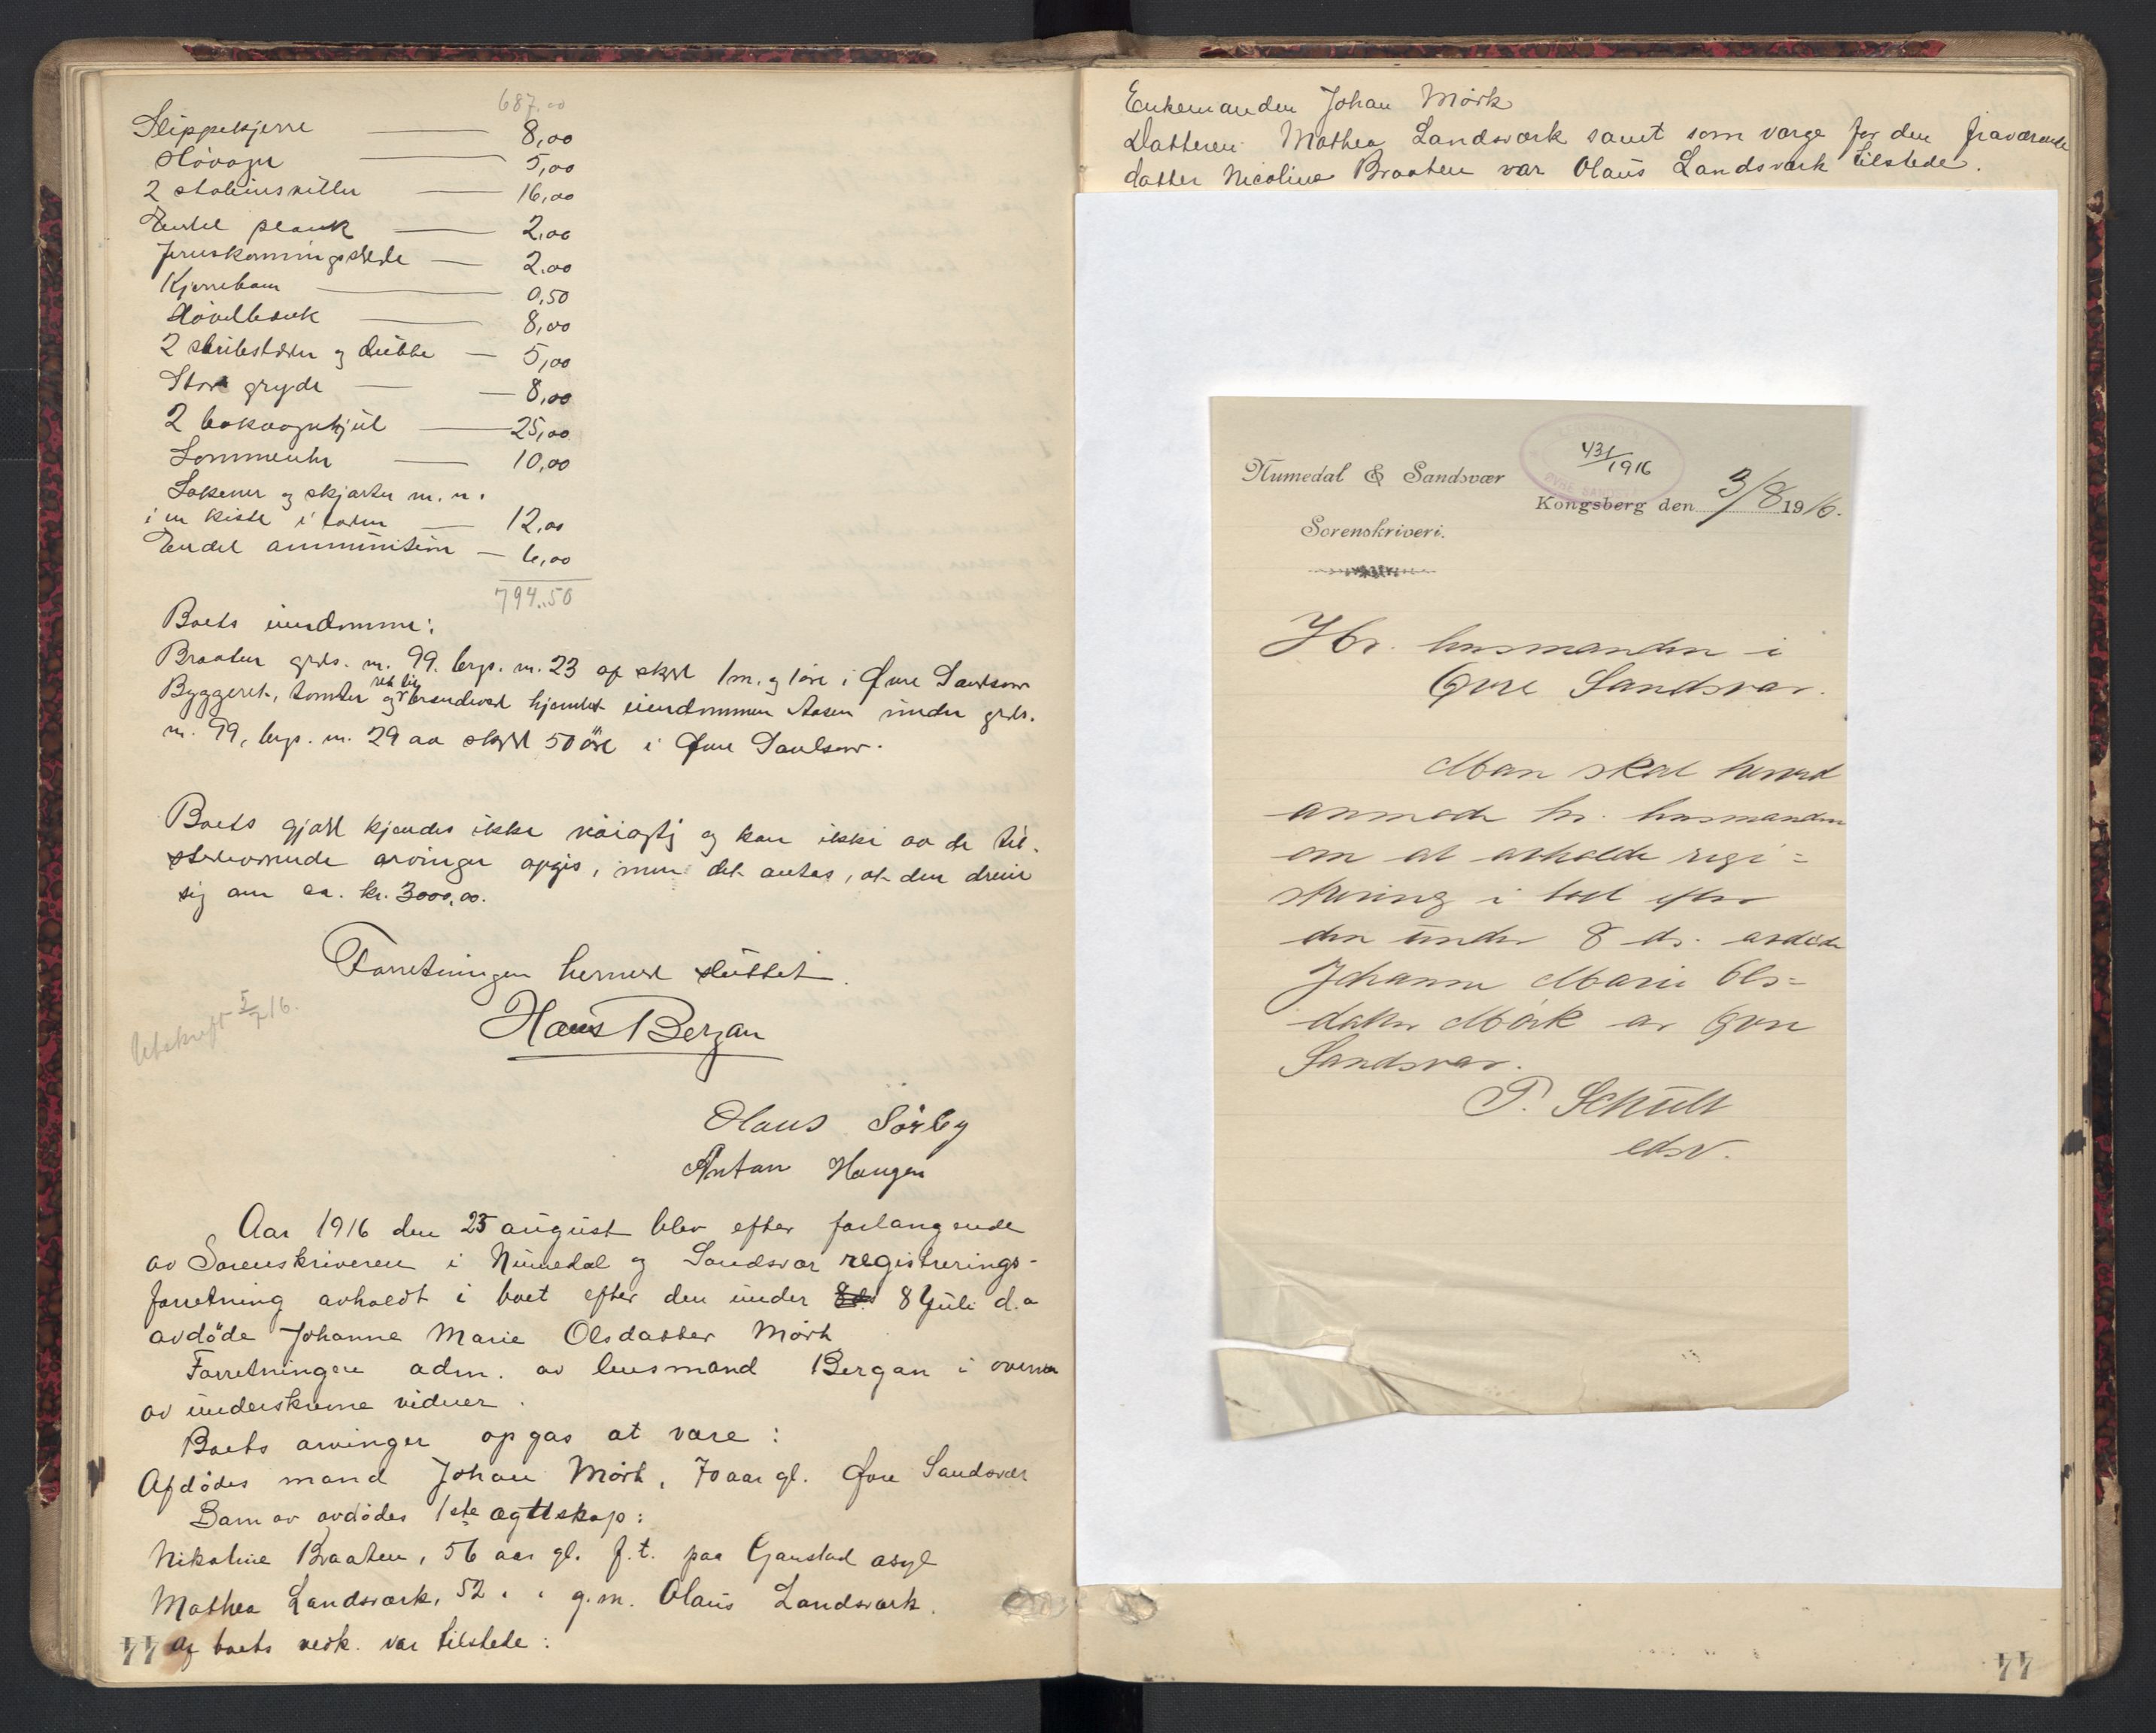 687.00
Slippekjerre 8,00
Høvogn 5,00
2 staliinskiller 16,00
Endel plank 2,00
Jernskoningsslede 2.00
Kjerreham 0,50
Høvelbænk 8,00
2 slibestener og dubbe 5,00
Stor gryde 8,00
2 bakvognhjul 25,00
Lommeuhr 10,00
Lakener og skjorter m.m.
i en kiste i boden 12,00
Endel ammunition 6,00
794.50
Boets eiendomme:
Braaten grds. nr. 99. brgs. nr. 23 af skyld 1 m. og 1 øre i Øvre Sandsvær
ret til
Byggeret, tomter og brændeved hjemlet eiendommen Aasen under grds.
nr. 99, brgs. nr. 29 aa skyld 50 öre i Øvre Sandsvær.
Boets gjæld kjendes ikke nöiagtig og kan ikke av de til-
stedeværende arvinger opgis, men det antas, at den dreier
sig om ca. kr. 3000,00.
Forretningen hermed sluttet.
Utskrift 5/7 16.
Hans Bergan
Olaus Sörby
Anton Haugen
Aar 1916 den 25 august blev efter forlangende
av Sorenskriveren i Numedal og Sandsvær registrerings-
forretning avholdt i boet efter den under 8 Juli d.a
avdöde Johanne Marie Olsdatter Mörk
Forretningen adm. av lensmand Bergan i overvær
av underskrevne vidner.
Boets arvinger opgas at være:
Afdödes mand Johan Mörk, 70 aar gl. Øvre Sandsvær
Barn av avdödes 1ste ægteskap:
Nikoline Braaten, 56 aar gl. f.t. paa Gaustad asyl
Mathea Landsværk, 52 " " g.m. Olaus Landsværk.
Af boets vedk. var tilstede:
44
Enkemanden Johan Mörk
Datteren Mathea Landsværk samt som værge for den fraværende
datter Nicoline Braaten var Olaus Landsværk tilstede.
431/1916
Numedal & Sandsvær
Sorenskriveri.
Kongsberg den 3/8 1916.
Hr. lensmanden i
Øvre Sandsvær.
Man skal herved
anmode hr. lensmanden
om at avholde regi=
strering i boet efter
den under 8 ds. avdöde
Johanne Marie Ols=
datter Mörk av Øvre
Sandsvær.
P. Schult
edsv.
44